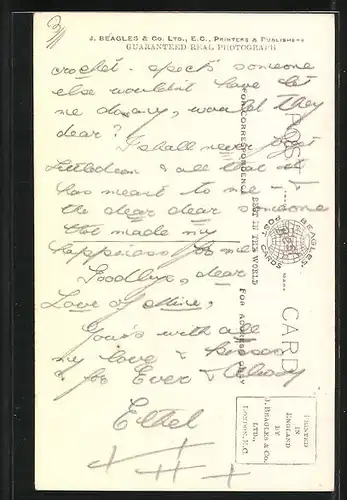 3/
J. BEAGLES & CO. LTD., E.C., PRINTERS & PUBLISHERS
GUARANTEED REAL PHOTOGRAPH
crochet - spect's someone
else wouldn't have let
me do any, would they
dear?
I shall never forget
& all that it
has meant to me,
& the dear dear someone
that made my
happiness for me
Goodbye, dear
Love of mine,
Yours with all
my love & kisses
for Ever &
Ethel
POST CARD
FOR CORRESPONDENCE
BEST IN THE WORLD
FOR ADDRESS ONLY
BEAGLES
POST CARDS
TRADE MARK
PRINTED
IN
ENGLAND
BY
J. BEAGLES & CO.
LTD.,
LONDON, E.C.